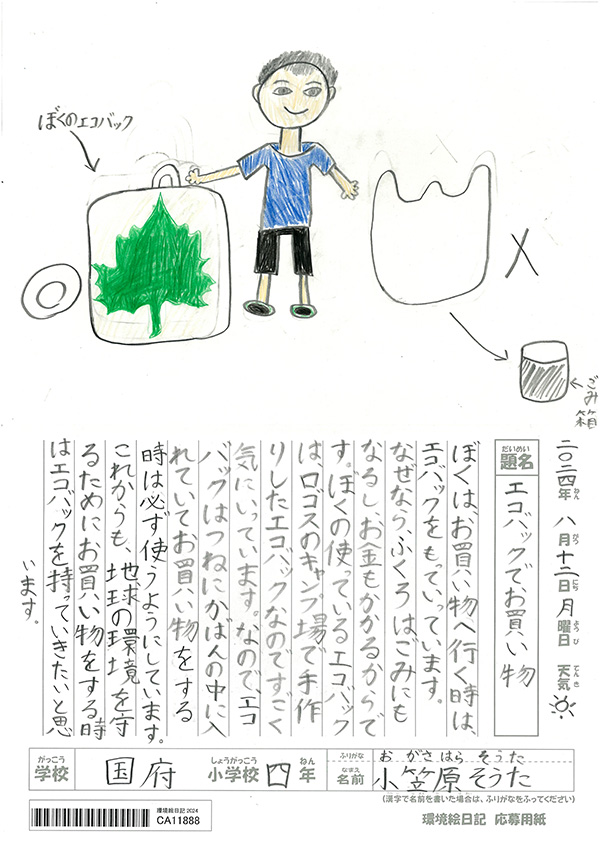 ぼくのエコバック
ごみ箱
二〇二四年 八月十二日 月曜日 天気
ねん がつ にち ようび てんき
だいめい
題名 エコバックでお買い物
ぼくは、お買い物へ行く時は、
エコバックをもっていっています。
なぜなら、ふくろはごみにも
なるし、お金もかかるからで
す。ぼくの使っているエコバック
は、ロゴスのキャンプ場で手作
りしたエコバックなのですごく
気にいっています。なので、エコ
バッグはつねにかばんの中に入
れていてお買い物をする
時は必ず使うようにしています。
これからも、地球の環境を守
るためにお買い物をする時
はエコバックを持っていきたいと思
います。
がっこう しょうがっこう ねん
学校 国府 小学校 四年
ふりがな おがさはら そうた
なまえ
名前 小笠原そうた
(漢字で名前を書いた場合は、ふりがなをふってください)
環境絵日記 2024
CA11888
環境絵日記 応募用紙